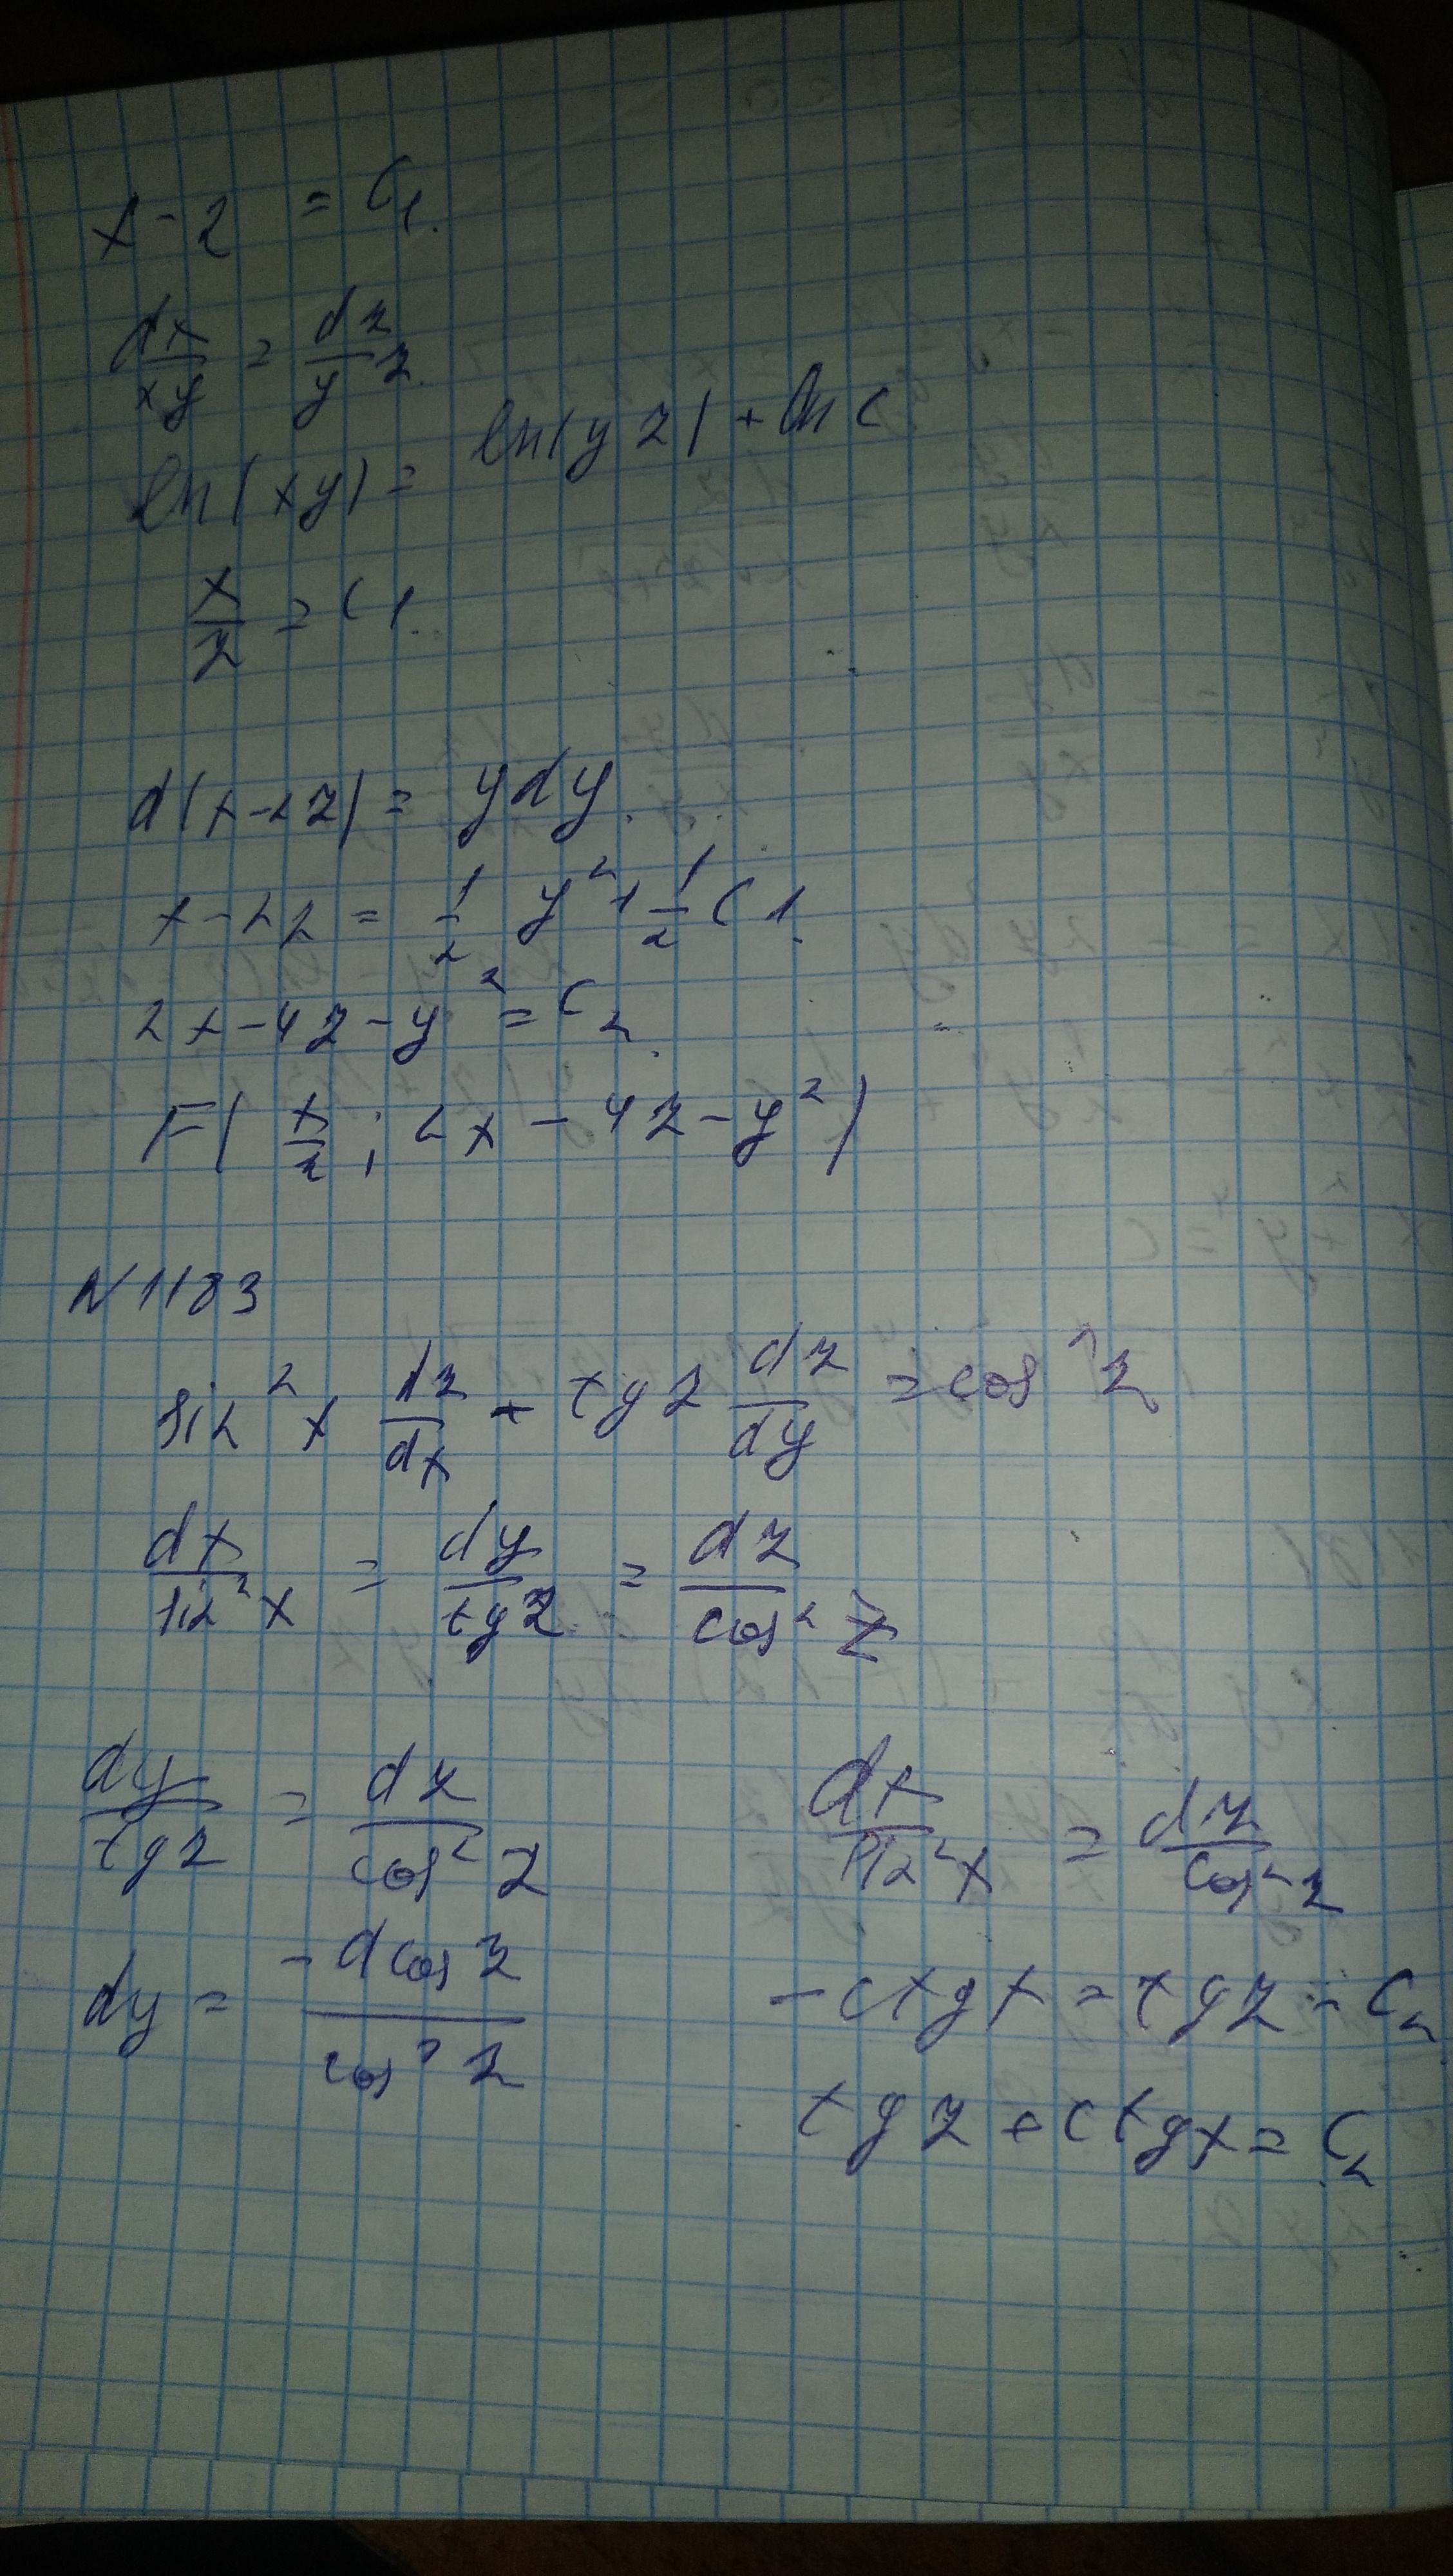 x - z = C₁.
dx/xy = dz/yz.
ln(xy) = ln(yz) + ln C
x/z = C1.
d(x-2z) = ydy.
x-2z = 1/2 y² + 1/2 C1.
2x-4z-y² = C₂.
F( x/z ; 2x - 4z - y² )
N 1183
sin² x dz/dx + tg z dz/dy = cos² z
dx/sin² x = dy/tg z = dz/cos² z
dy/tg z = dz/cos² z
dy = -d cos z/cos³ z
dx/sin² x = dz/cos² z
-ctg x = tg z - C₂
tg z + ctg x = C₂